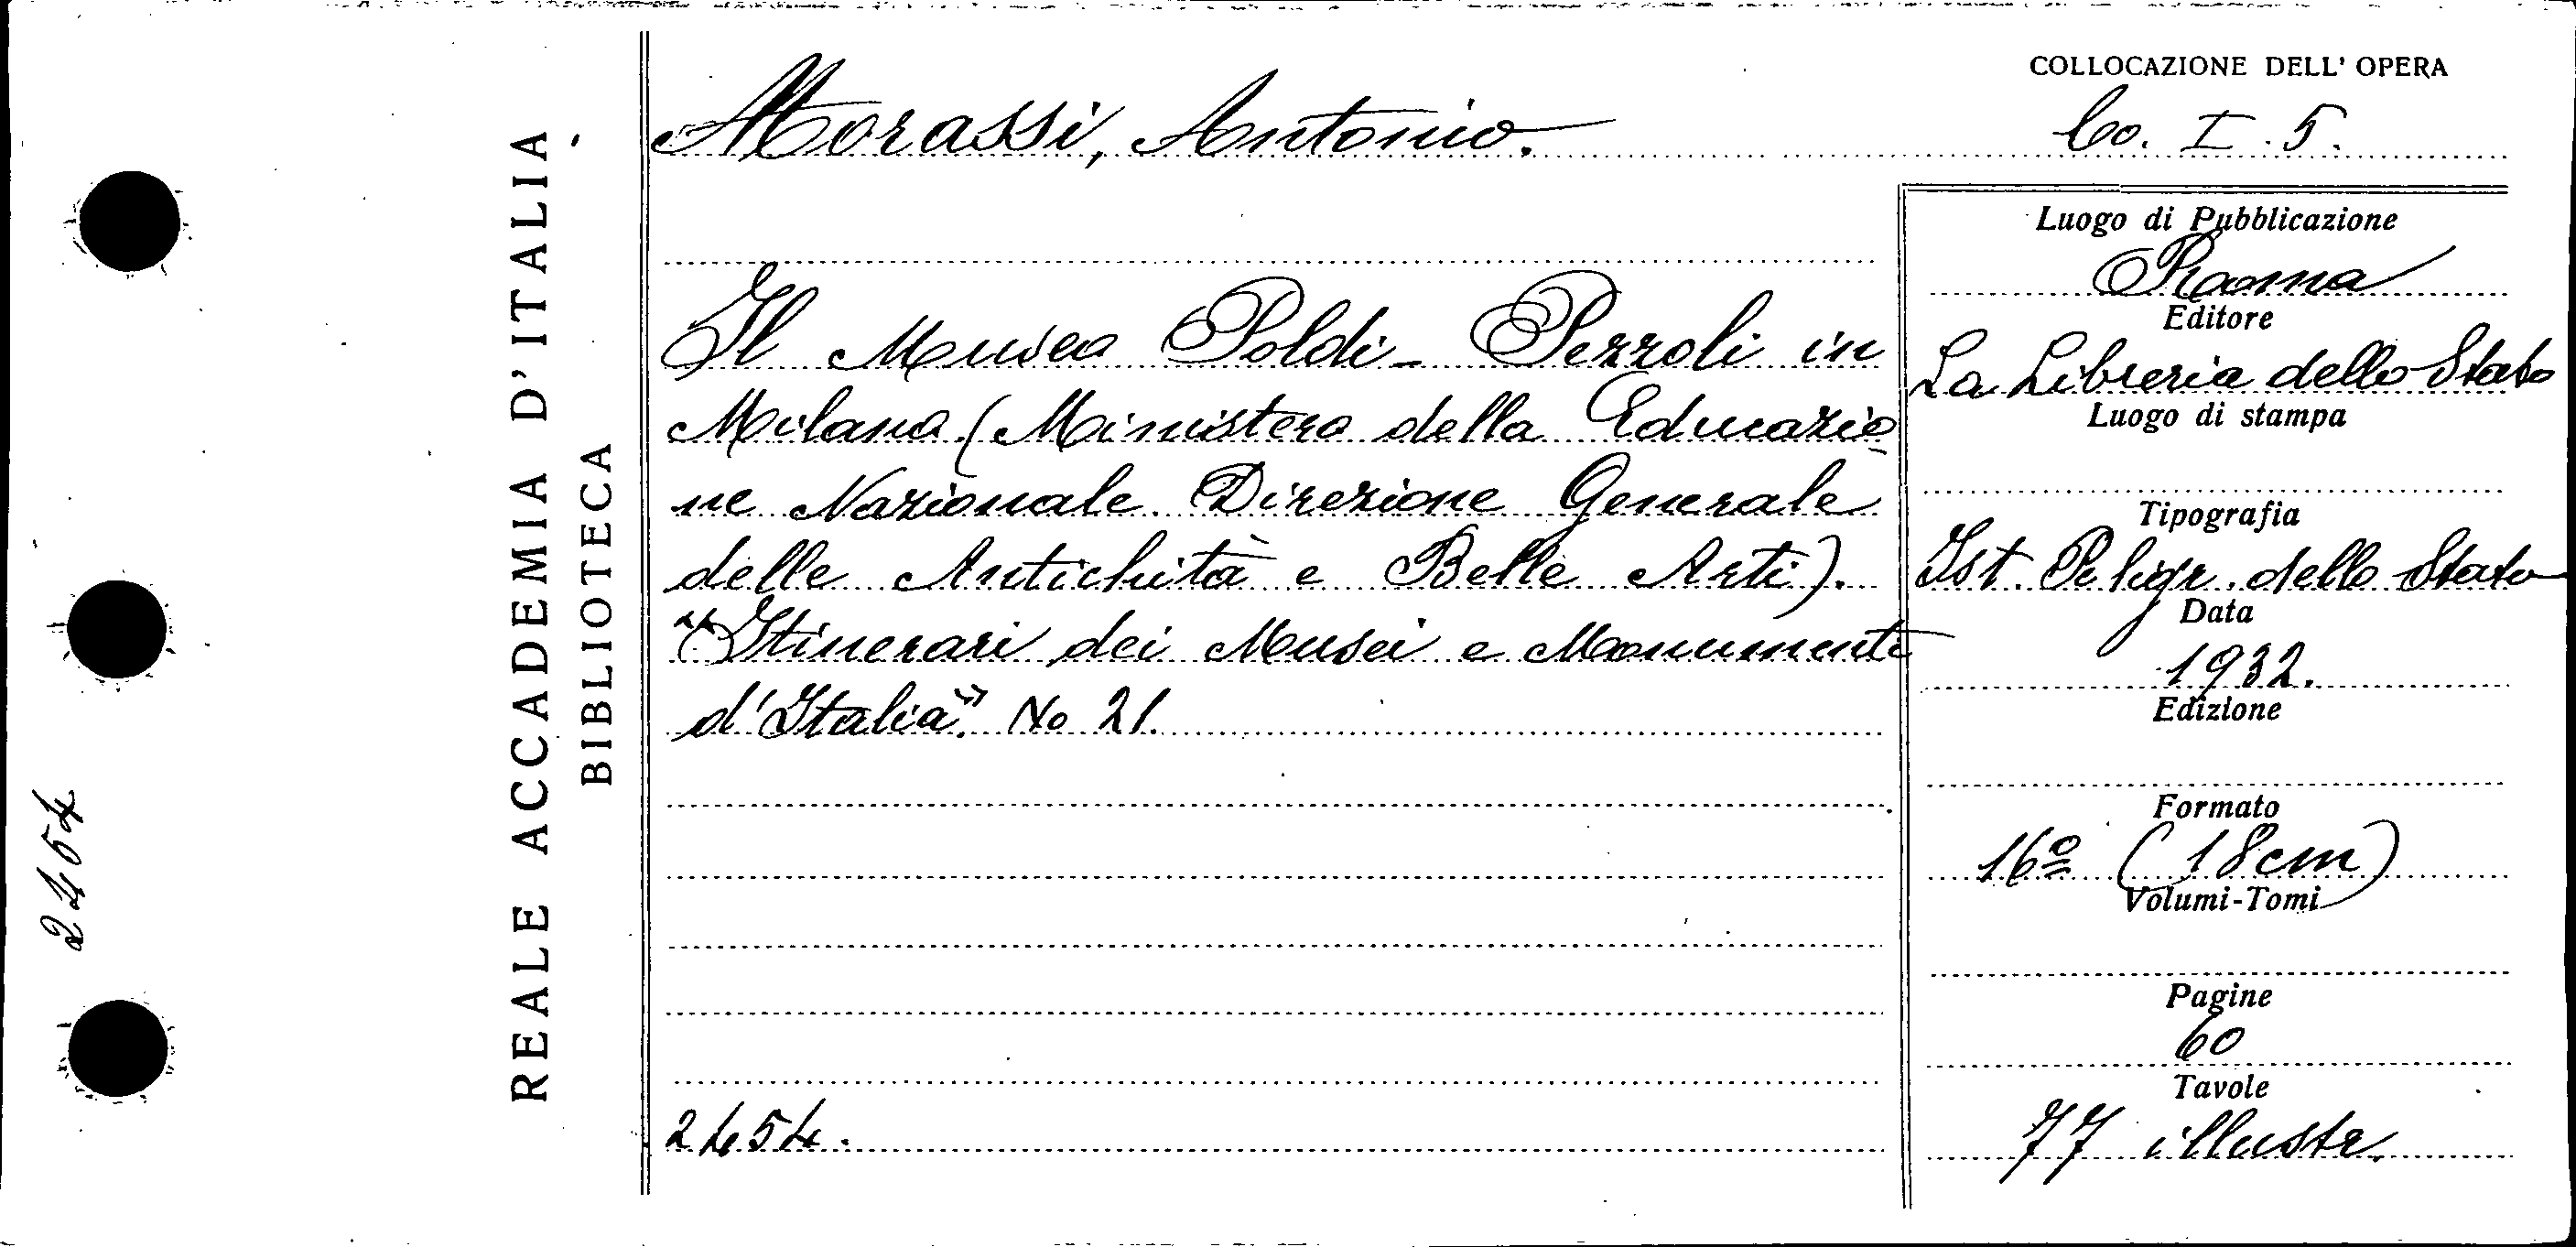 2454
REALE ACCADEMIA D'ITALIA
BIBLIOTECA
Morassi, Antonio.
Il Museo Poldi-Pezzoli in
Milano (Ministero della Educazio
ne Nazionale Direzione Generale
delle Antichità e Belle Arti).
"Itinerari dei Musei e Monumenti
d'Italia". No 21.
2454.
COLLOCAZIONE DELL' OPERA
Co. I. 5.
Luogo di Pubblicazione
Roma
Editore
La Libreria dello Stato
Luogo di stampa
Tipografia
Ist. Poligr. dello Stato
Data
1932.
Edizione
Formato
16º (18cm)
Volumi-Tomi
Pagine
60
Tavole
77 illustr.